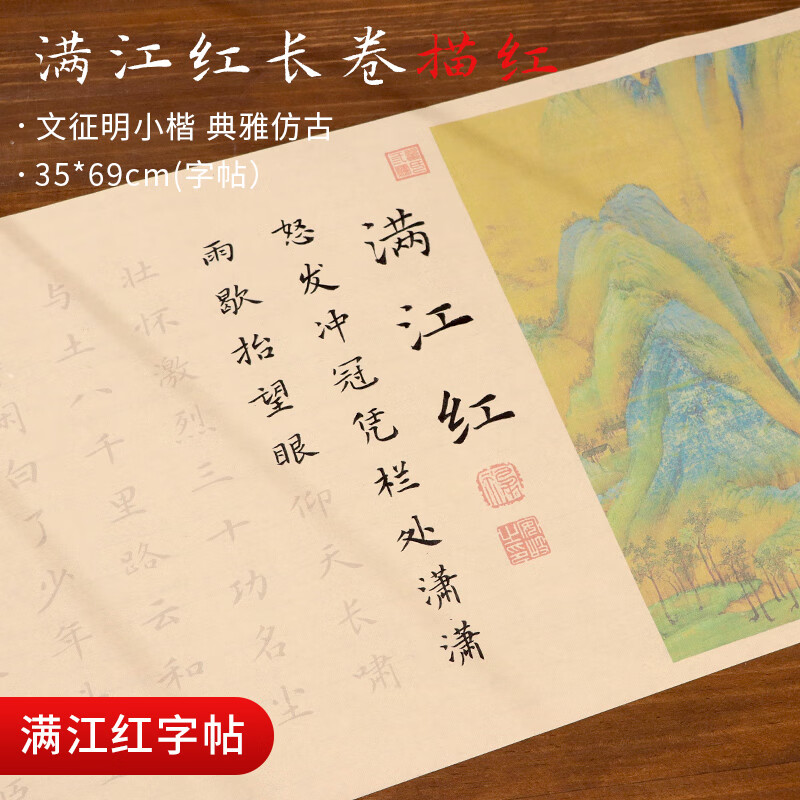 满江红长卷描红
· 文征明小楷 典雅仿古
· 35*69cm(字帖）
满江红
怒发冲冠凭栏处潇潇
雨歇抬望眼仰天长啸
壮怀激烈三十功名尘
与土八千里路云和
闲白了少年头
满江红字帖